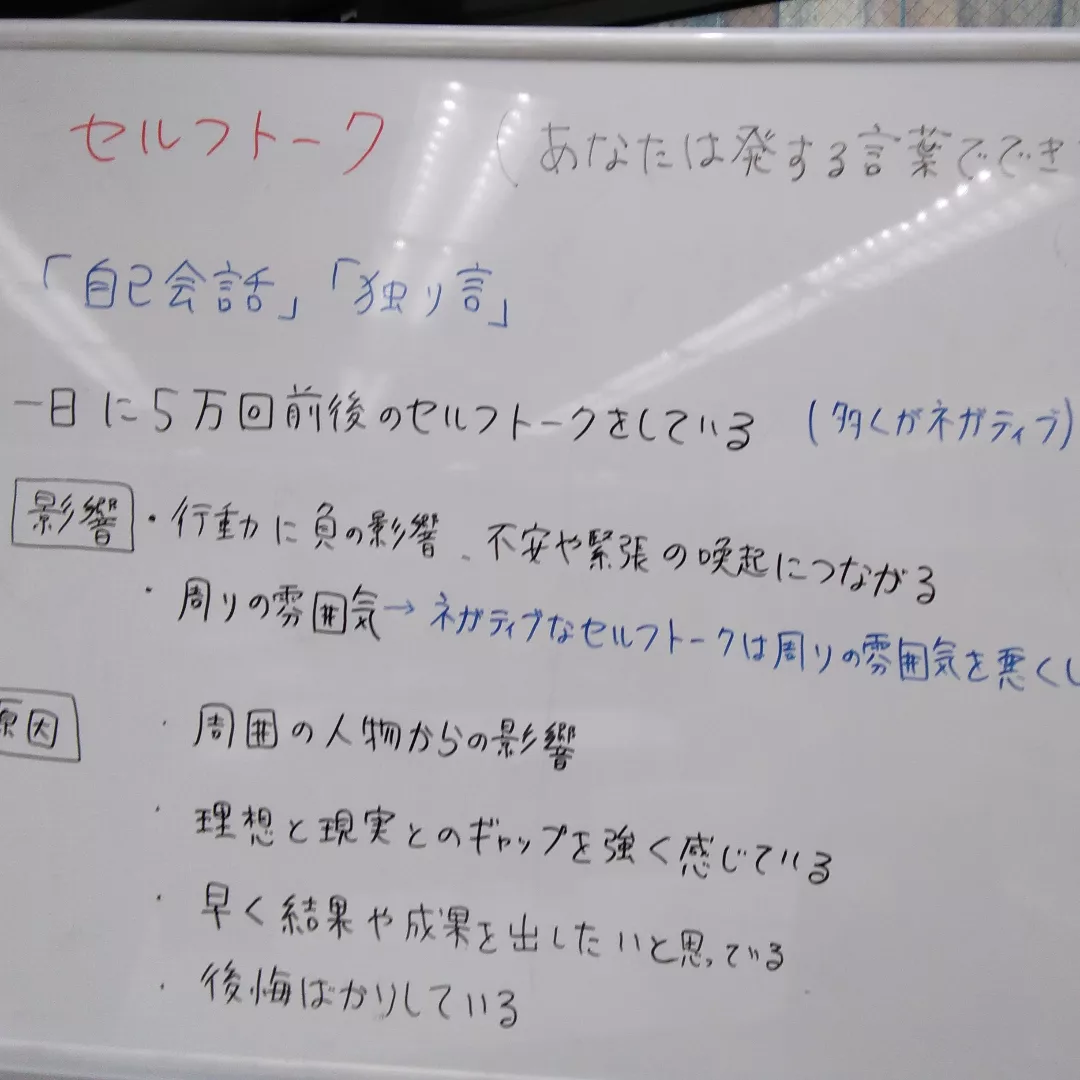 セルフトーク (あなたは発する言葉ででき
「自己会話」「独り言」
一日に5万回前後のセルフトークをしている (多くがネガティブ)
影響 ・行動に負の影響、不安や緊張の喚起につながる
・周りの雰囲気→ネガティブなセルフトークは周りの雰囲気を悪くし
原因 ・周囲の人物からの影響
・理想と現実とのギャップを強く感じている
・早く結果や成果を出したいと思っている
・後悔ばかりしている